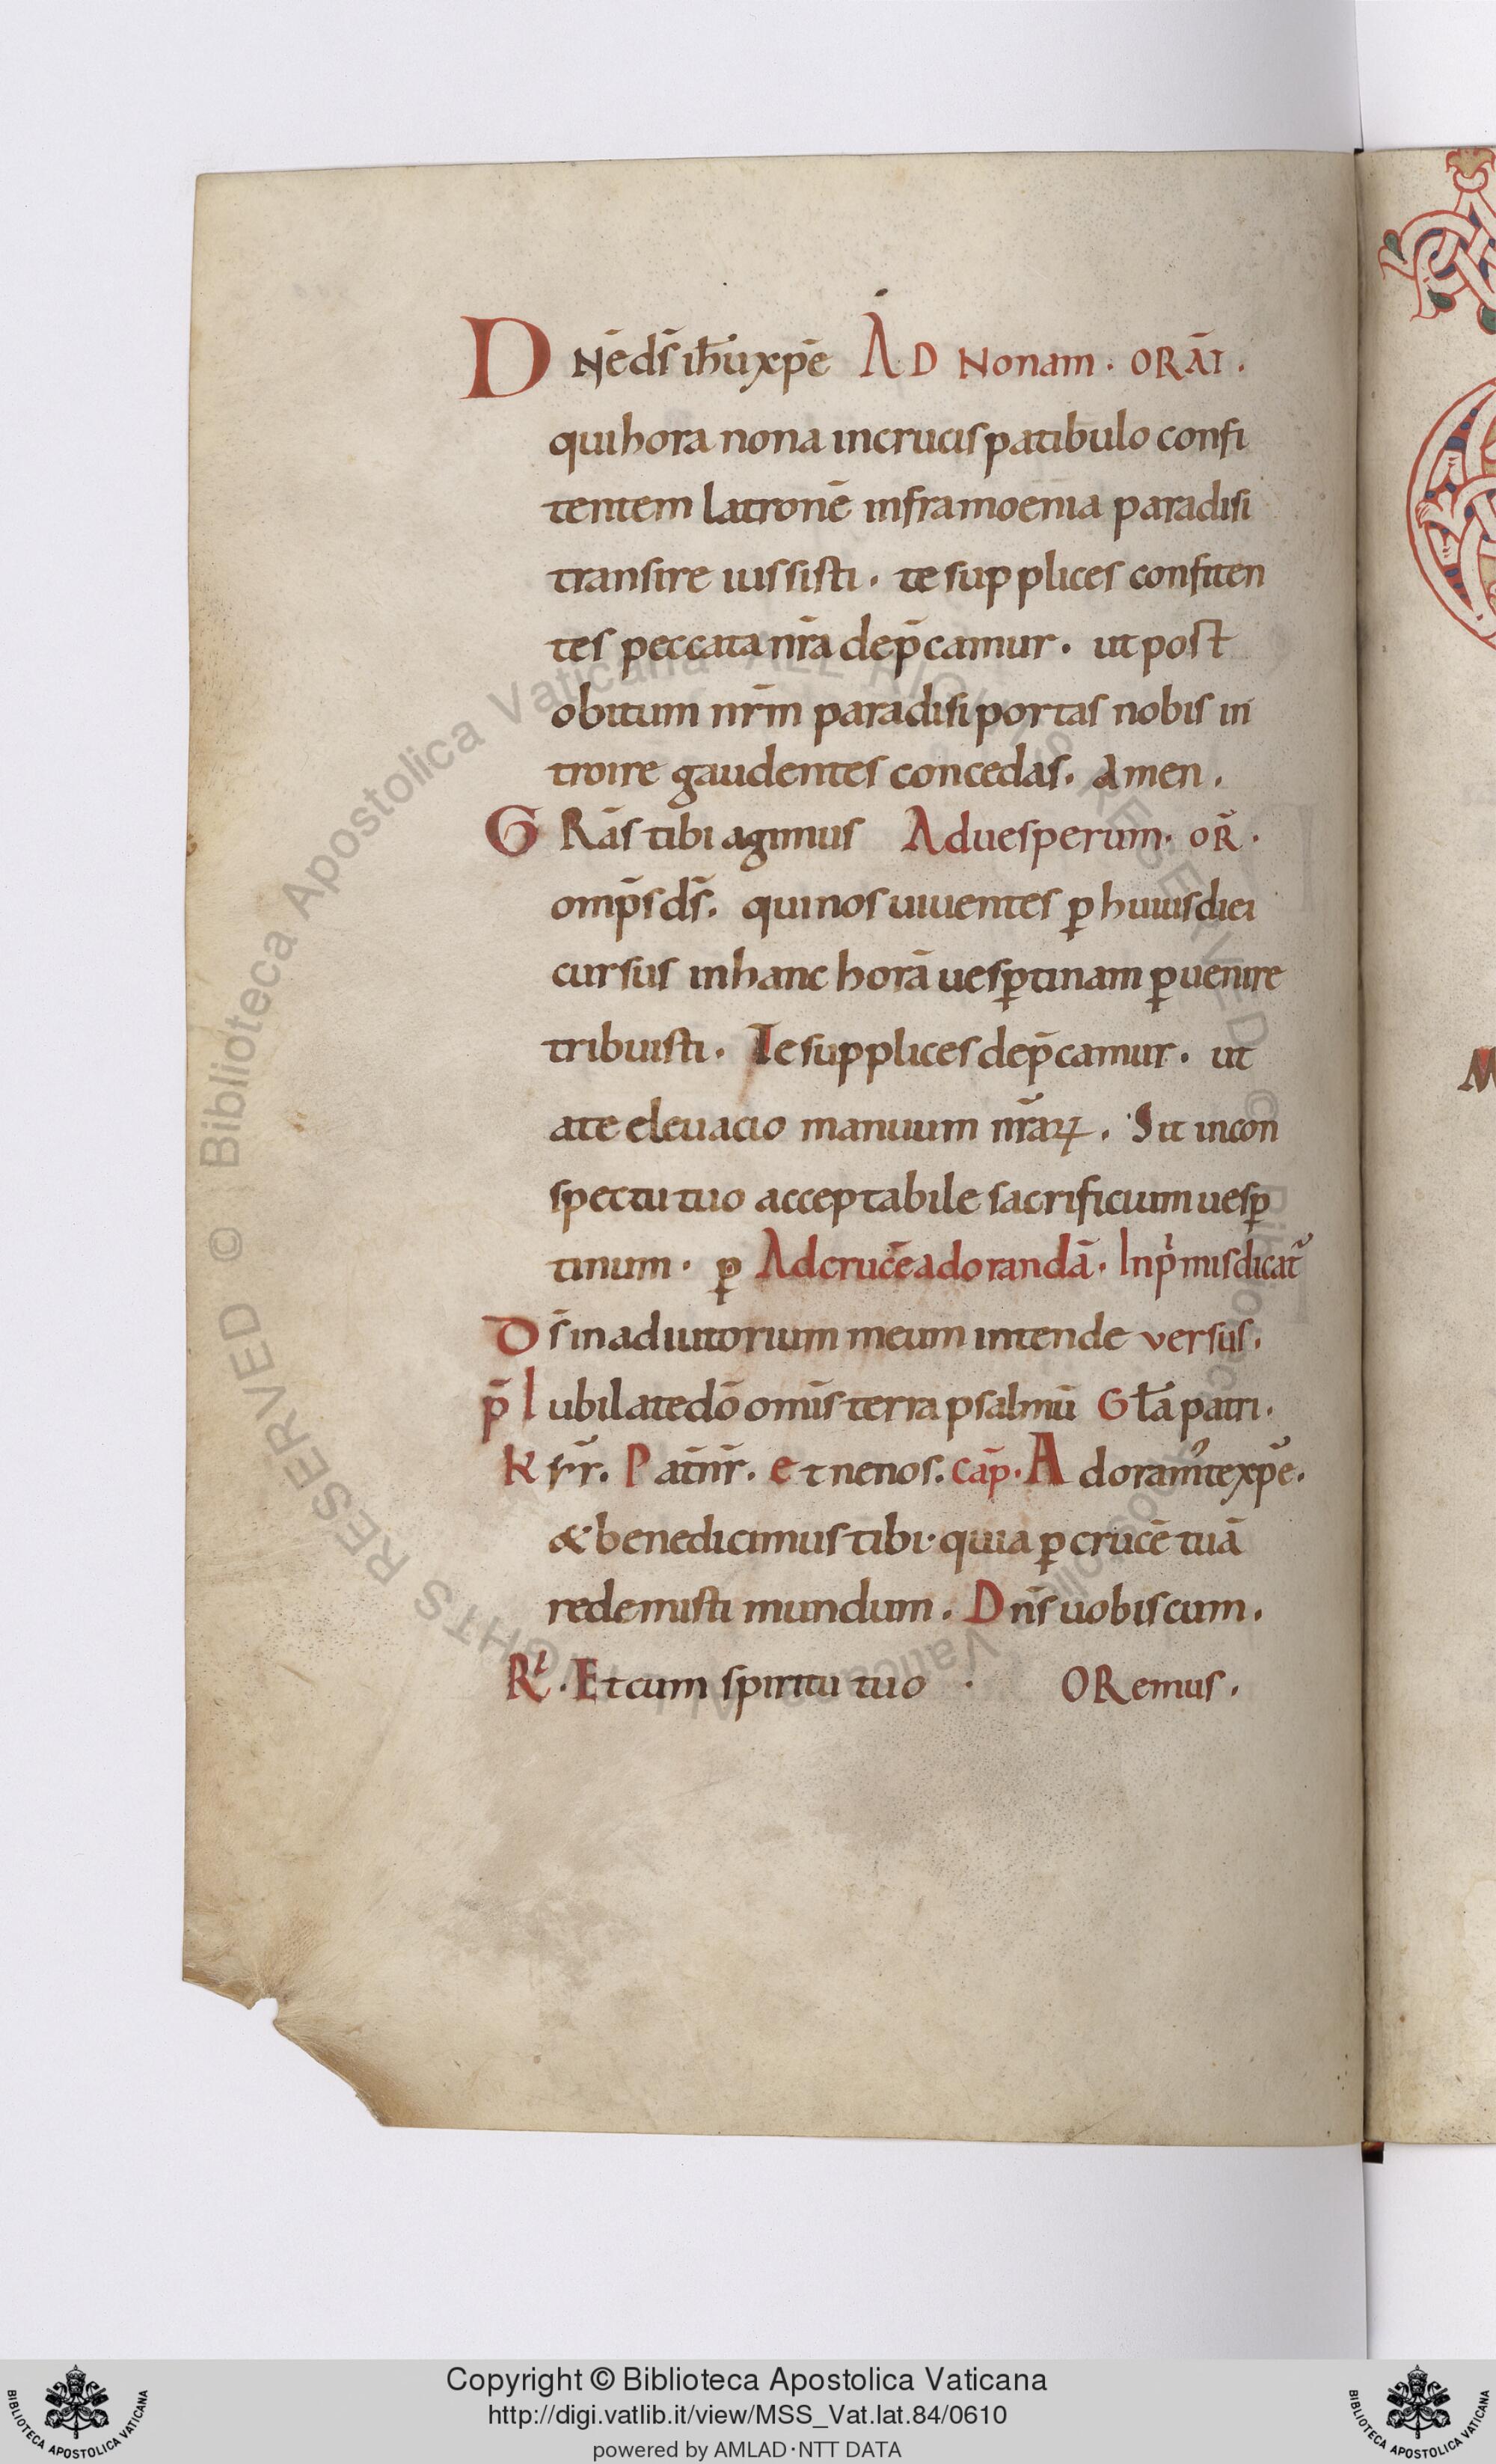 D Nēds̄ ih̄u xp̄e AD Nonam · ORĀT ·
qui hora nona in crucis patibulo confi
tentem latronē infra moenia paradisi
transire iussisti · te supplices confiten
tes peccata nr̄a dep̄camur · ut post
obitum nr̄m paradisi portas nobis in
troire gaudentes concedas · Amen ·
G Rās tibi agimus Ad uesperum · OR̄ ·
omp̄s ds̄ · qui nos uiuentes ꝑ huius diei
cursus in hanc horā uesꝑtinam ꝑuenire
tribuisti · Te supplices dep̄camur · ut
a te eleuacio manuum nr̄aꝝ · Sit in con
spectu tuo acceptabile sacrificium uesꝑ
tinum · ꝑ Ad crucē adorandā · Inp̄mis dicat᷑
D s̄ in adiutorium meum intende versus ·
p̄ Iubilate dō omīs terra psalmū Gƚa patri ·
K rr̄ · P at̄ nr̄ · et ne nos · cap̄ · A doram᷒ te xp̄e ·
& benedicimus tibi · quia ꝑ crucē tuā
redemisti mundum · Dn̄s uobiscum ·
Rƚ · Et cum spiritu tuo · ORemus ·
Copyright © Biblioteca Apostolica Vaticana
http://digi.vatlib.it/view/MSS_Vat.lat.84/0610
powered by AMLAD·NTT DATA
BIBLIOTECA APOSTOLICA VATICANA
BIBLIOTECA APOSTOLICA VATICANA
© Biblioteca Apostolica Vaticana ALL RIGHTS RESERVED © Biblioteca Apostolica Vaticana ALL RIGHTS RESERVED